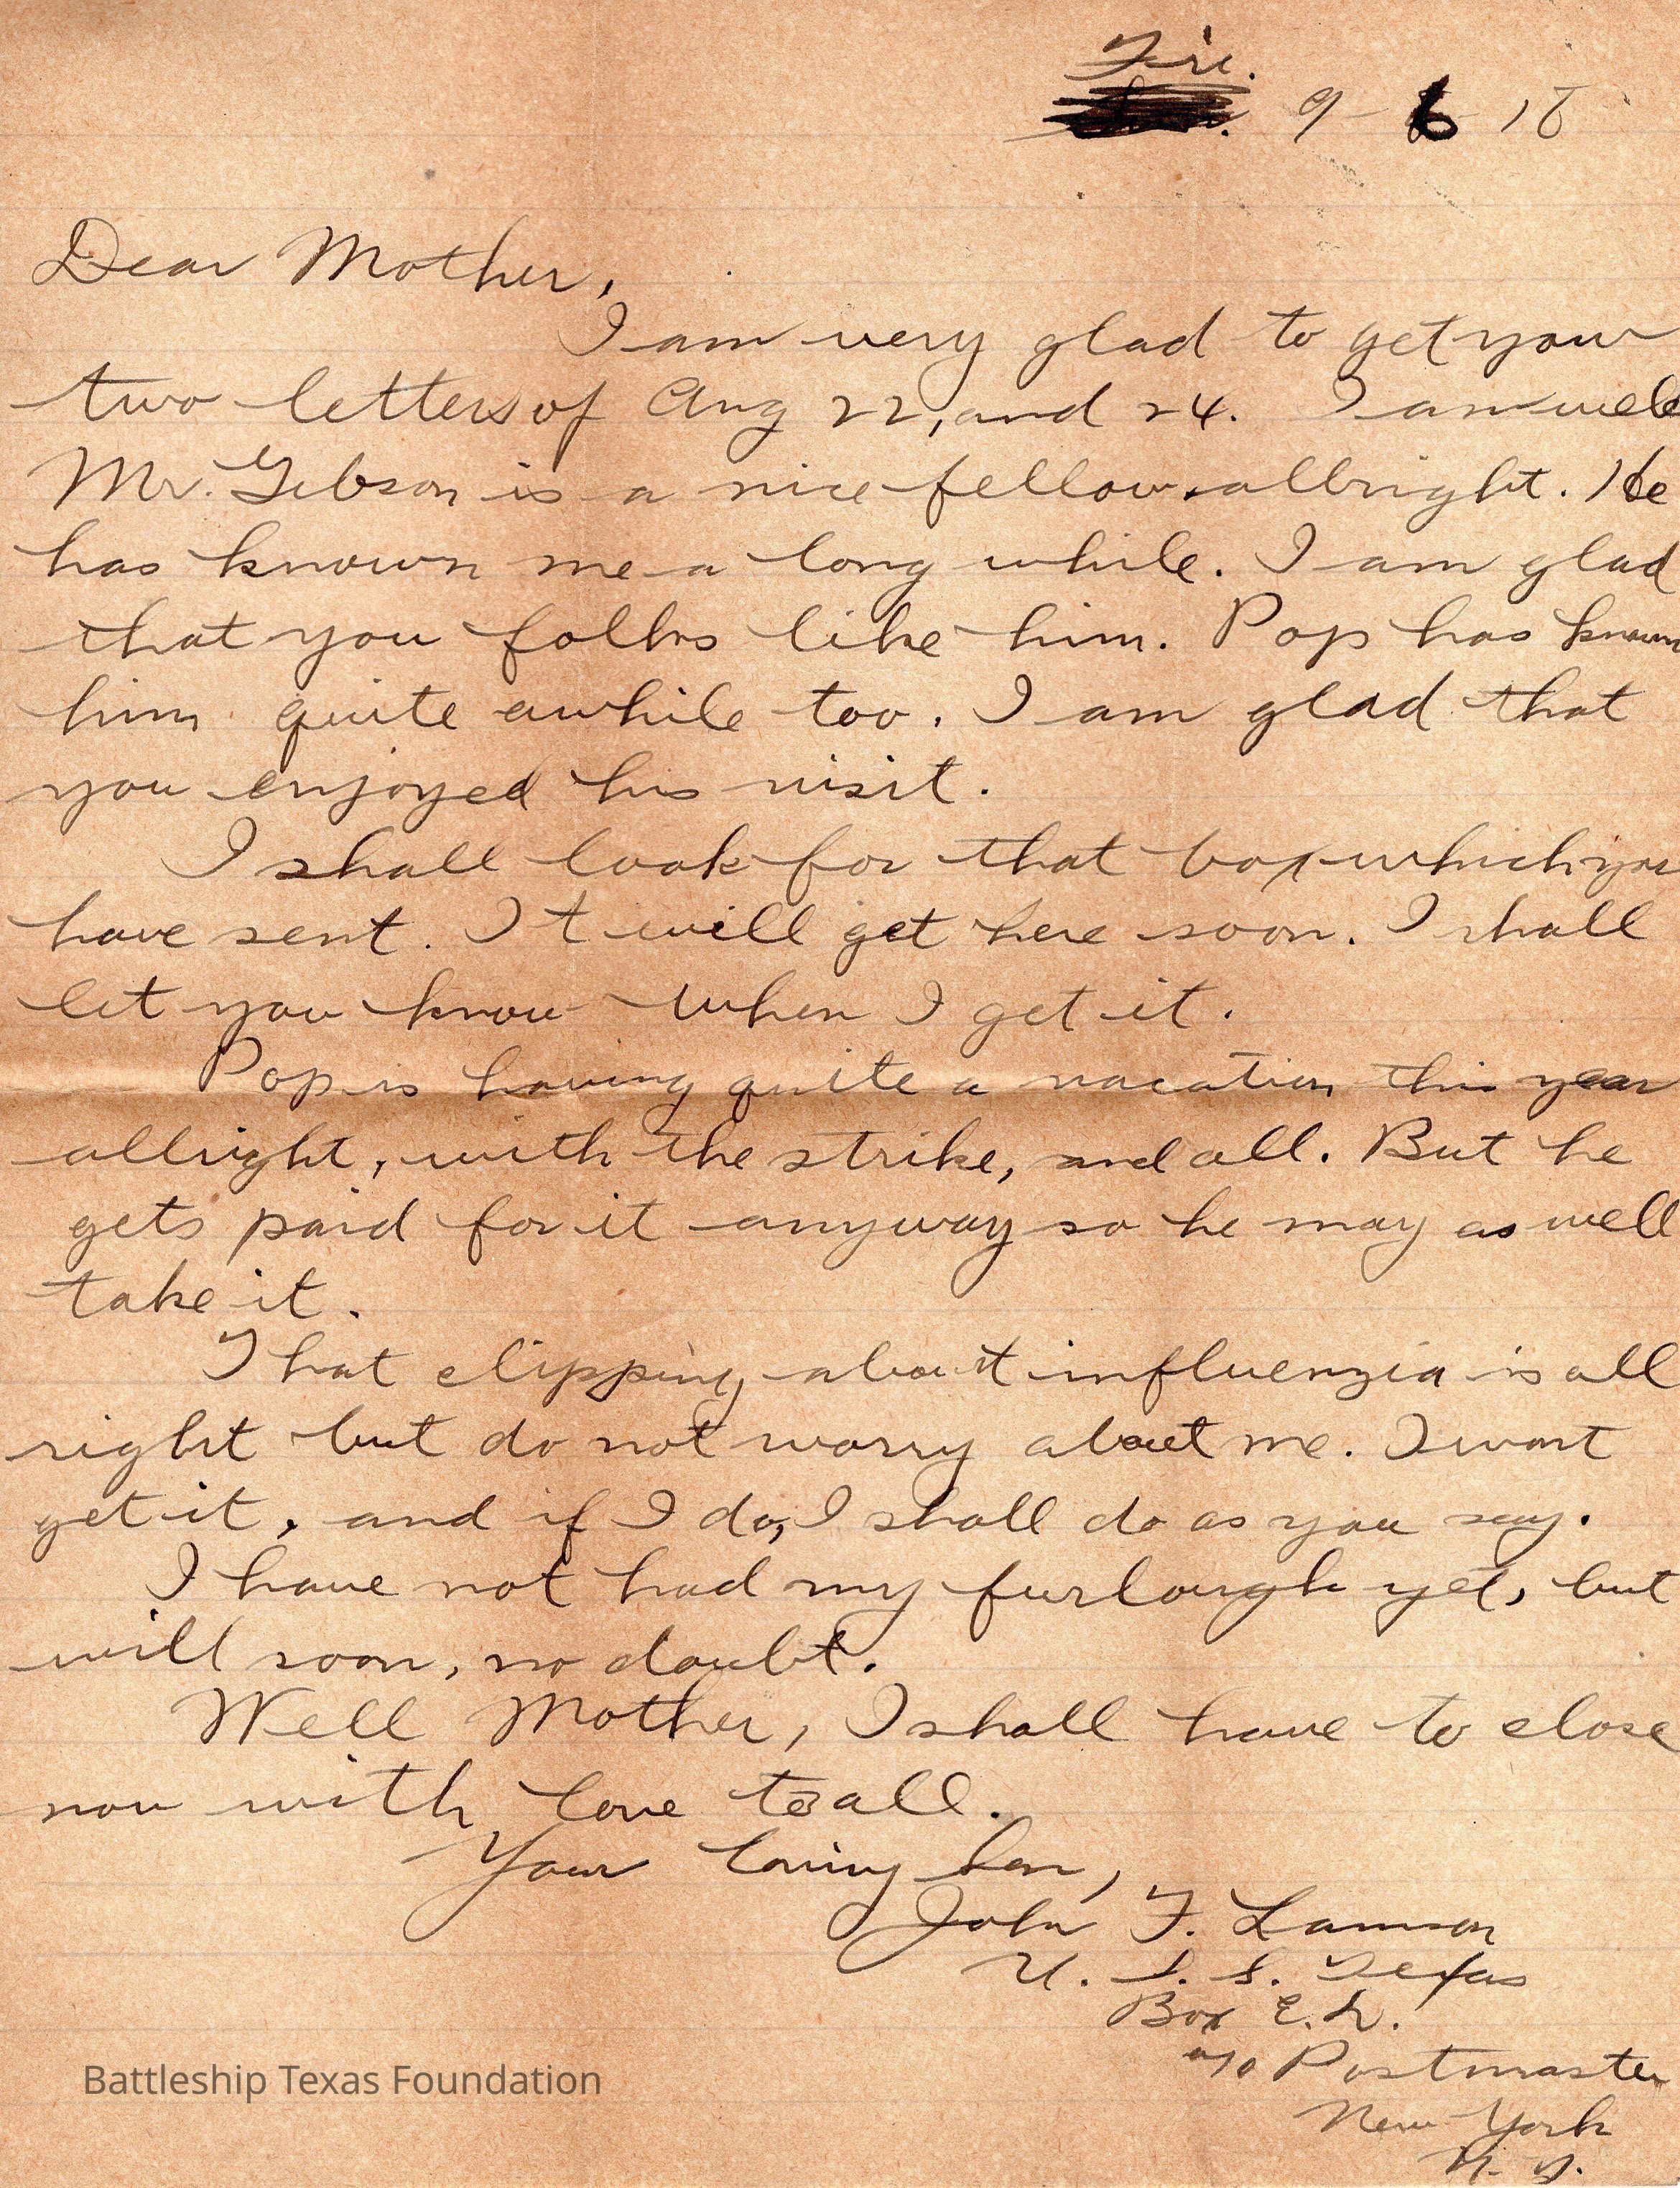 Fri.
9-6 18
Dear Mother,
I am very glad to get your
two letters of Aug 22, and 24. I am well
Mr. Gibson is a nice fellow allright. He
has known me a long while. I am glad
that you folks like him. Pop has known
him quite awhile too. I am glad that
you enjoyed his visit.
I shall look for that box which you
have sent. It will get here soon. I shall
let you know when I get it.
Pop is having quite a vacation this year
allright, with the strike, and all. But he
gets paid for it anyway so he may as well
take it.
That clipping about influenzia is all
right but do not worry about me. I wont
get it, and if I do, I shall do as you say.
I have not had my furlough yet, but
will soon, no doubt.
Well Mother, I shall have to close
now with love to all.
Your loving son,
John F. Lamson
U. S. S. Texas
Box E. L.
c/o Postmaster
New York
N. Y.
Battleship Texas Foundation